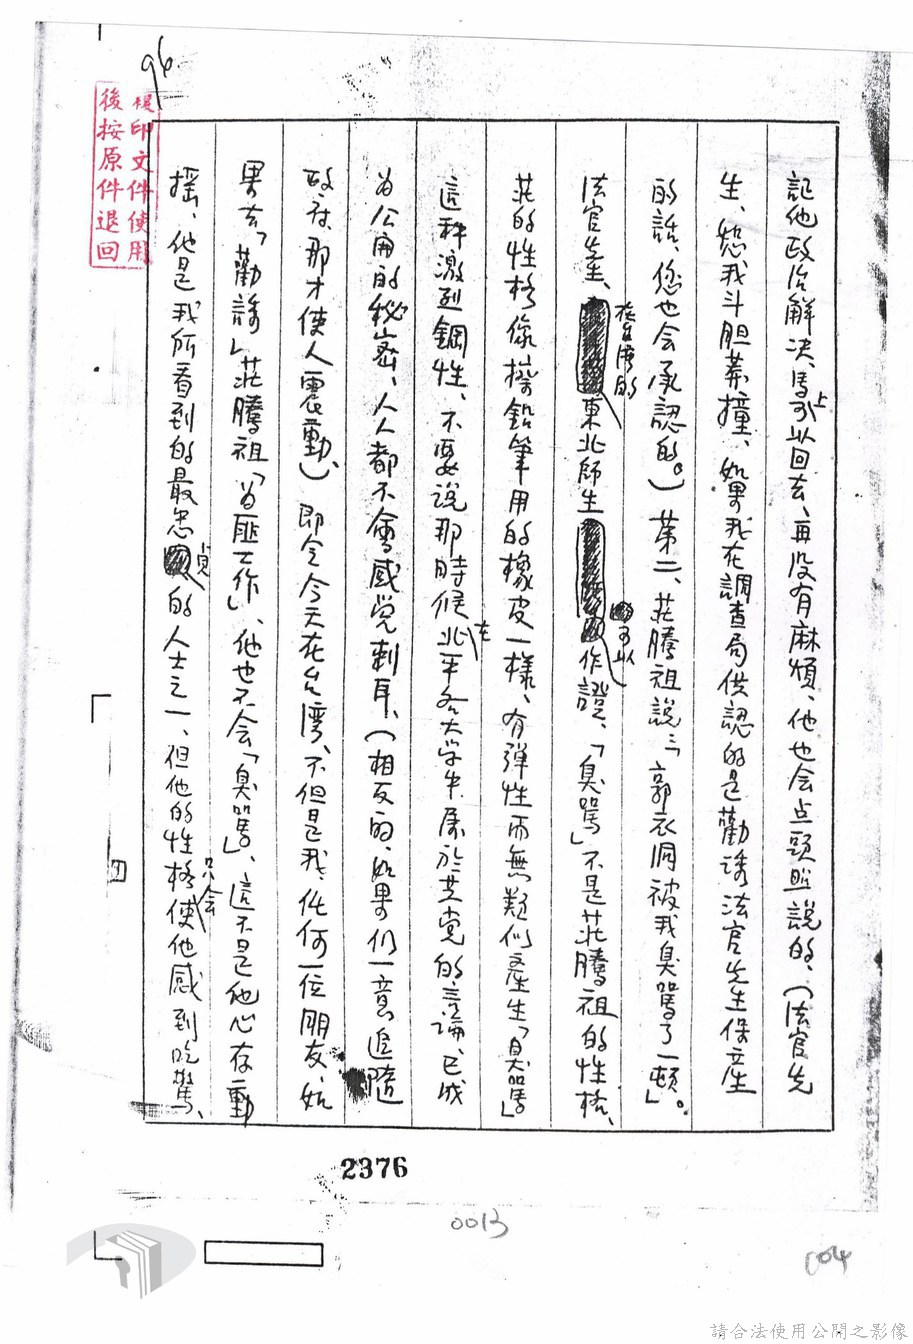 記他政治解決、馬上可以回去、再没有麻煩、他也会点頭照說的、（法官先
生、恕我斗胆莽撞、如果我在調查局供認的是勸誘法官先生保產
的話、您也会承認的。）第二、莊騰祖說：「郭衣洞被我臭駡了一頓」。
法官先生、在台灣的東北師生可以作證、「臭駡」不是莊騰祖的性格、
莊的性格像擦鉛筆用的橡皮一樣、有彈性而無類似產生「臭駡」
這种激烈鋼性、不要說那時候在北平各大学生展於共党的言論、已成
為公開的秘密、人人都不會感覚刺耳、（相反的、如果仍一意追隨
政府、那才使人震動）、即令今天在台湾、不但是我、任何一位朋友、如
果去「勸誘」莊騰祖「為匪工作」、他也不会「臭駡」、這不是他心存動
摇、他是我所看到的最忠貞的人士之一、但他的性格只会使他感到吃驚、
複印文件使用
後按原件退回
94
2376
0013
004
請合法使用公開之影像